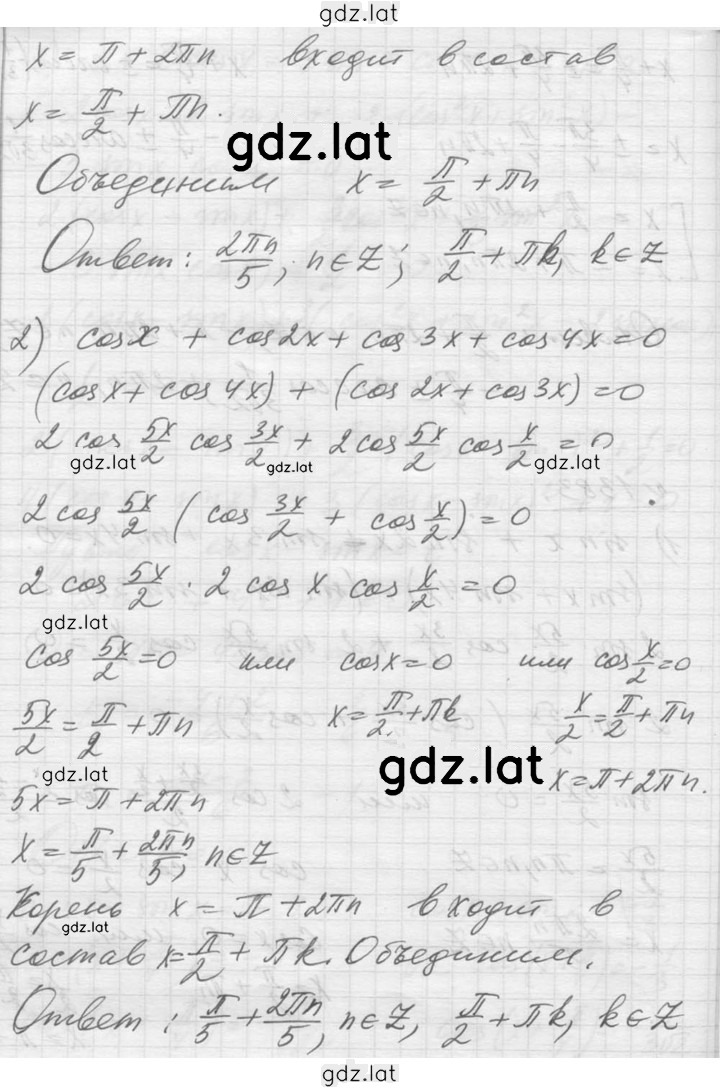 gdz.lat
x = π + 2πn входит в состав
x = π/2 + πn.
gdz.lat
Объединим x = π/2 + πn
Ответ: 2πn/5, n∈Z; π/2 + πk, k∈Z
2) cosx + cos2x + cos3x + cos4x = 0
(cosx + cos4x) + (cos2x + cos3x) = 0
2 cos 5x/2 cos 3x/2 + 2 cos 5x/2 cos x/2 = 0
gdz.lat gdz.lat gdz.lat
2 cos 5x/2 (cos 3x/2 + cos x/2) = 0
2 cos 5x/2 · 2 cos x cos x/2 = 0
gdz.lat
cos 5x/2 = 0 или cosx = 0 или cos x/2 = 0
5x/2 = π/2 + πn x = π/2 + πk x/2 = π/2 + πn
gdz.lat gdz.lat x = π + 2πn.
5x = π + 2πn
x = π/5 + 2πn/5, n∈Z
Корень x = π + 2πn входит в
gdz.lat
состав x = π/2 + πk. Объединим.
Ответ: π/5 + 2πn/5, n∈Z, π/2 + πk, k∈Z
gdz.lat